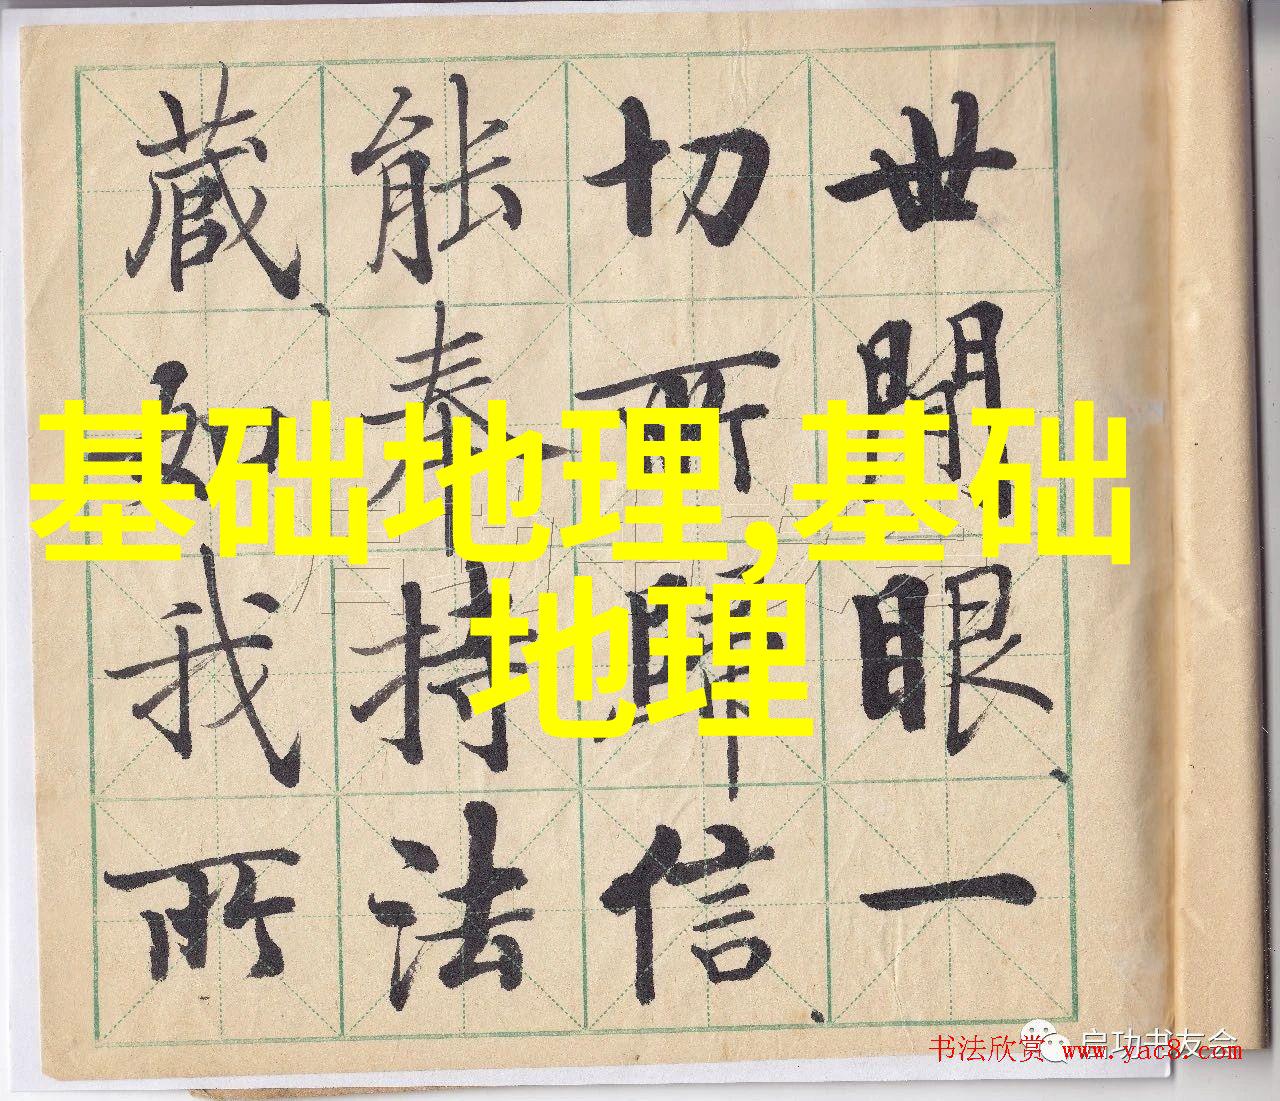 世間眼一
切所歸信
能奉持法
藏如我所
基础地理,基础
地理
书法欣赏 www.yac8.com
启功书友会